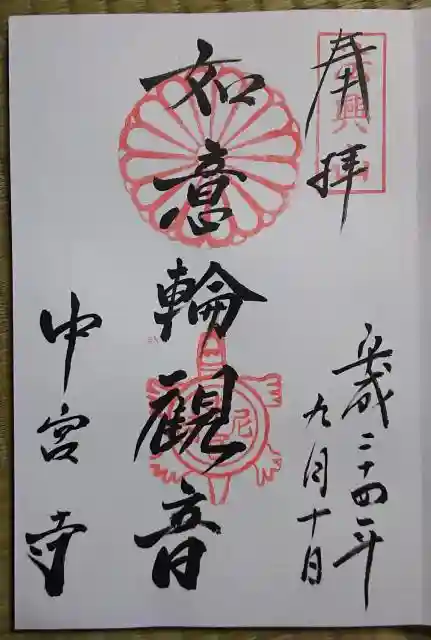 奉拝
平成二十四年
九月十日
如意輪観音
中宮寺